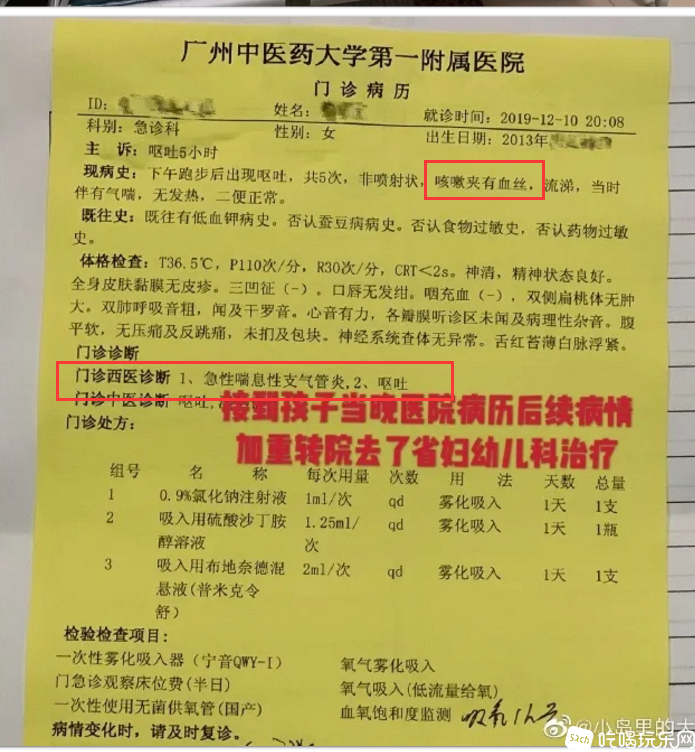 广州中医药大学第一附属医院
门诊病历
ID: 姓名: 就诊时间: 2019-12-10 20:08
科别: 急诊科 性别: 女 出生日期: 2013年
主 诉: 呕吐5小时
现病史: 下午跑步后出现呕吐, 共5次, 非喷射状, 咳嗽夹有血丝, 流涕, 当时
伴有气喘, 无发热, 二便正常。
既往史: 既往有低血钾病史。否认蚕豆病病史。否认食物过敏史, 否认药物过敏
史。
体格检查: T36.5℃, P110次/分, R30次/分, CRT<2s。神清, 精神状态良好。
全身皮肤黏膜无皮疹。三凹征 (-) 。口唇无发绀。咽充血 (-) , 双侧扁桃体无肿
大。双肺呼吸音粗, 闻及干罗音。心音有力, 各瓣膜听诊区未闻及病理性杂音。腹
平软, 无压痛及反跳痛, 未扣及包块。神经系统查体无异常。舌红苔薄白脉浮紧。
门诊诊断
门诊西医诊断 1、急性喘息性支气管炎,2、呕吐
门诊中医诊断 呕吐,
接到孩子当晚医院病历后续病情
加重转院去了省妇幼儿科治疗
门诊处方:
组号 名 称 每次用量 次数 用 法 天数 总量
1 0.9%氯化钠注射液 1ml/次 qd 雾化吸入 1天 1支
2 吸入用硫酸沙丁胺 1.25ml/ qd 雾化吸入 1天 1瓶
醇溶液 次
3 吸入用布地奈德混 2ml/次 qd 雾化吸入 1天 1支
悬液(普米克令
舒)
检验检查项目:
一次性雾化吸入器 (宁音QWY-I) 氧气雾化吸入
门急诊观察床位费(半日) 氧气吸入(低流量给氧)
一次性使用无菌供氧管(国产) 血氧饱和度监测 吸氧1小时
病情变化时, 请及时复诊。
@小岛里的大
52ch 吃喝玩乐网